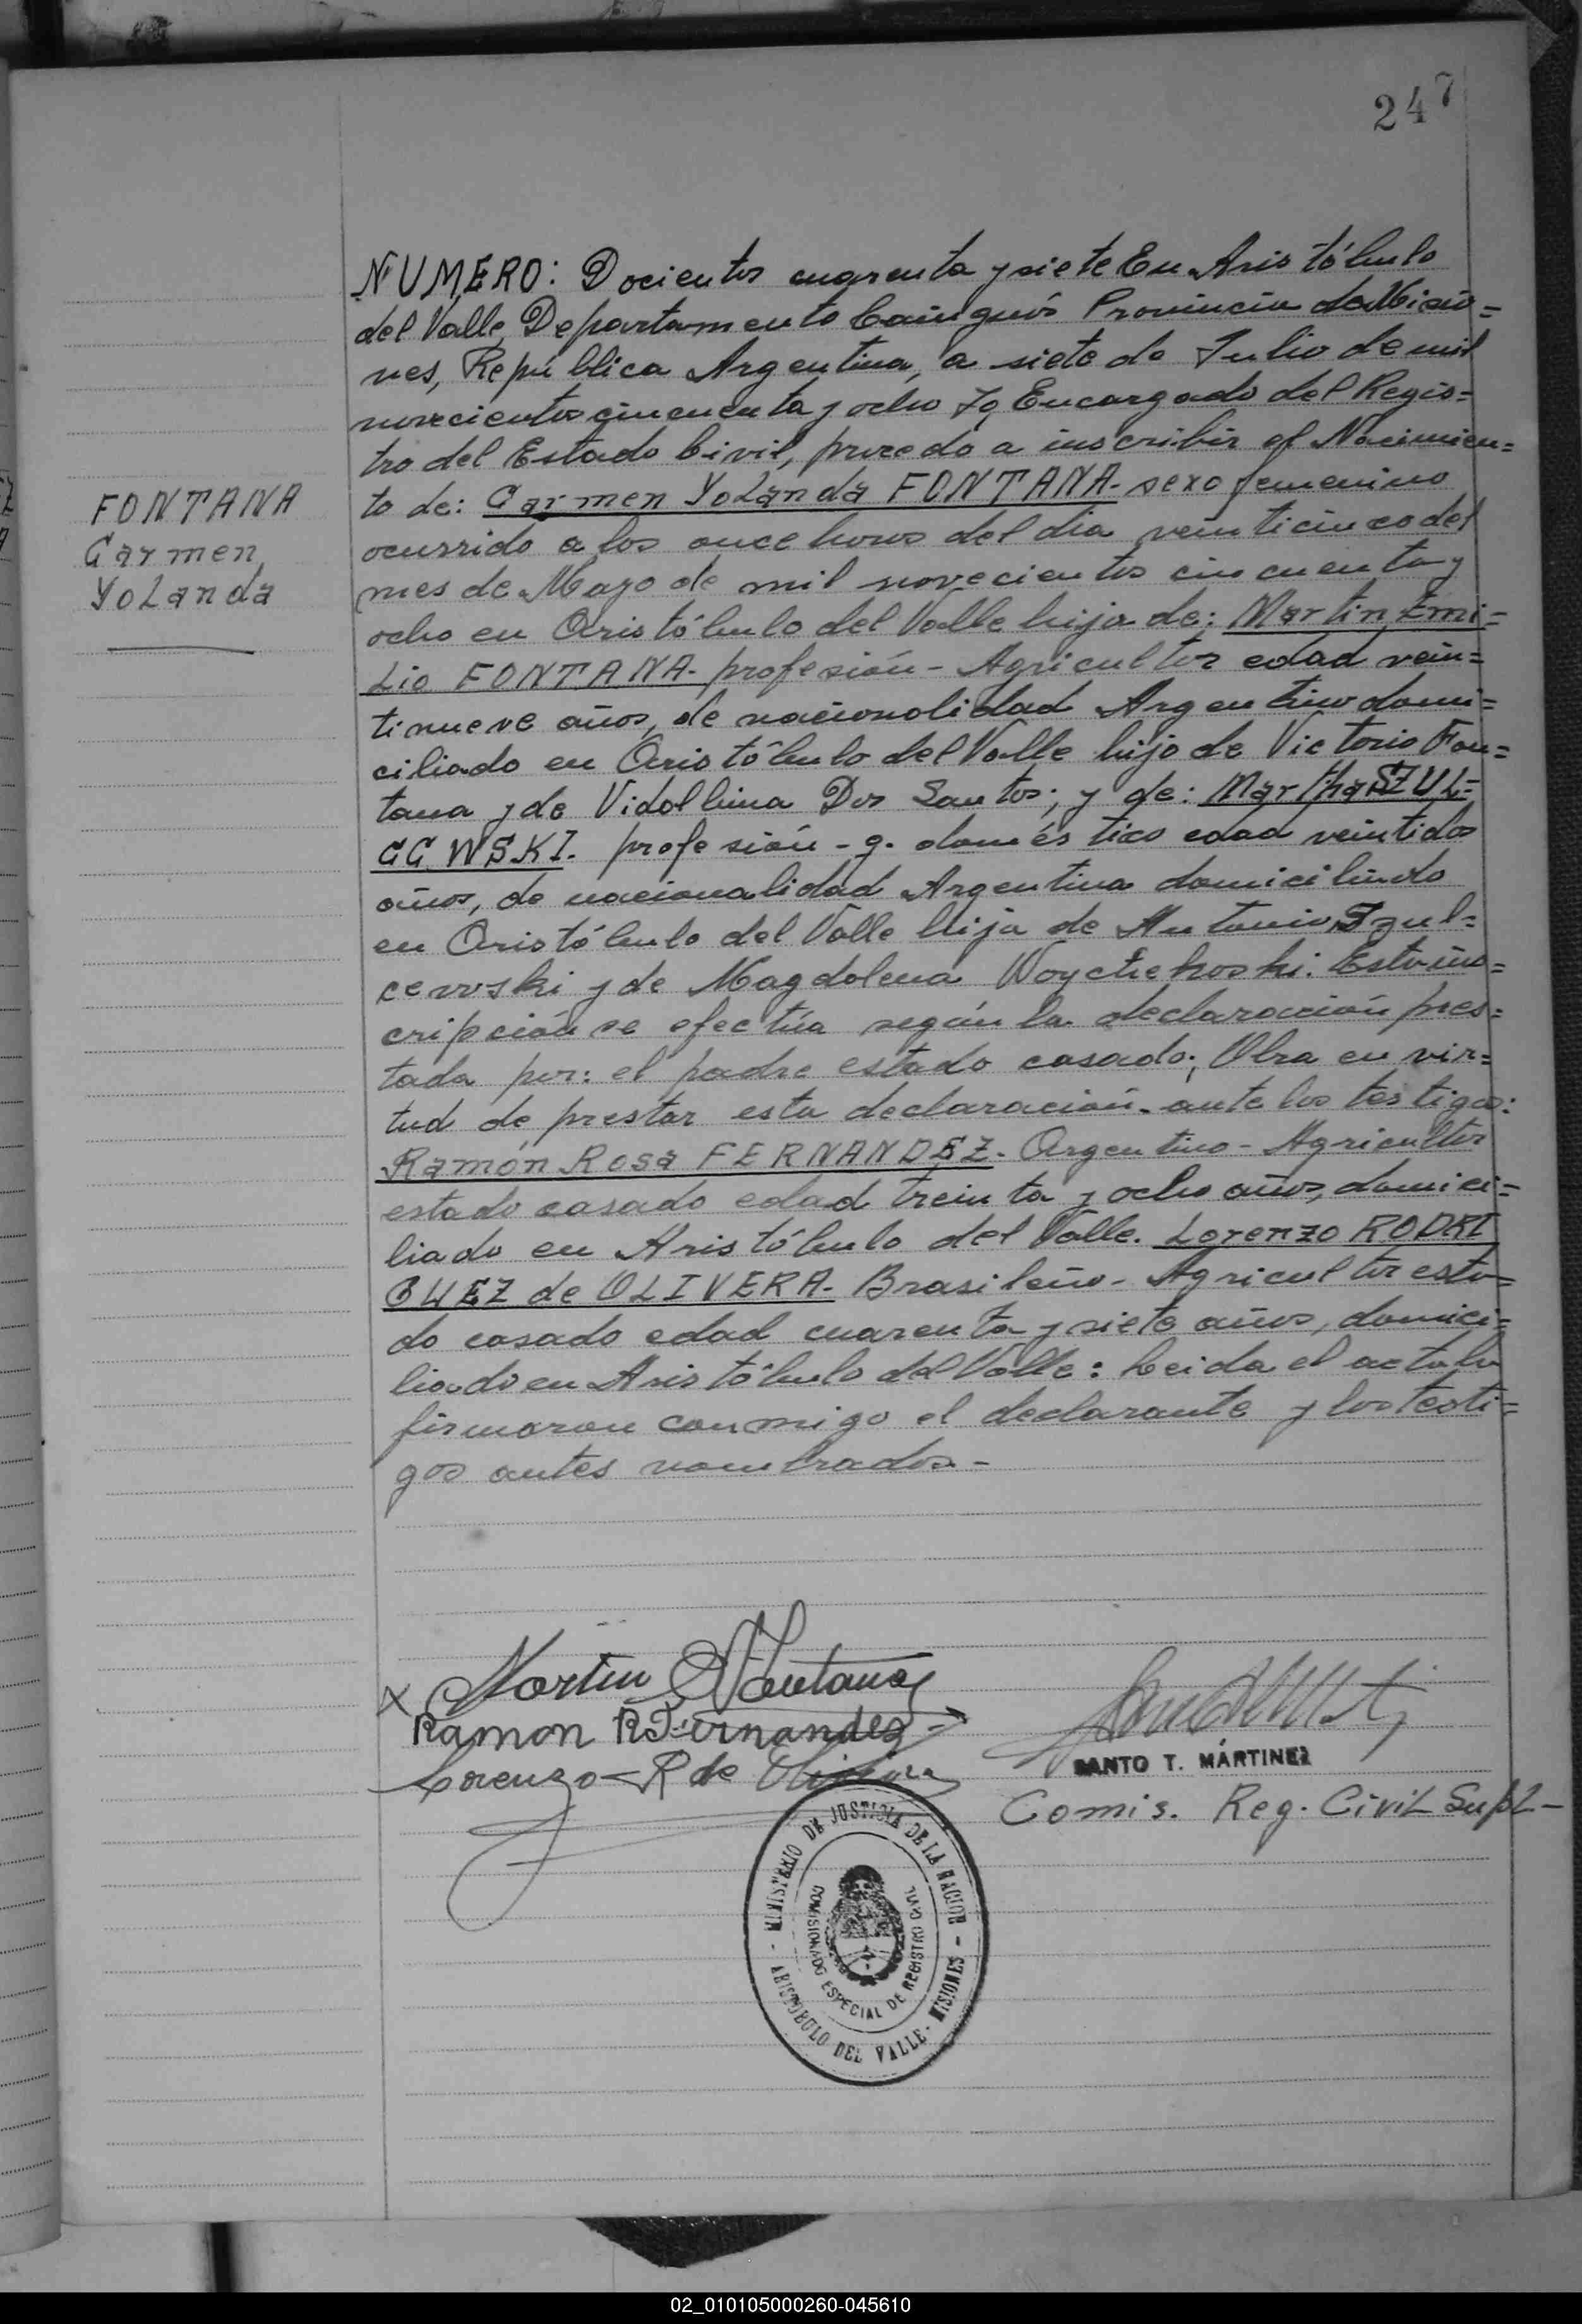 247
NUMERO: Docientos cuarenta y siete En Aristóbulo
del Valle, Departamento Cainguás Provincia de Misio=
nes, República Argentina, a siete de Julio de mil
novecientos cincuenta y ocho Yo, Encargado del Regis=
tro del Estado Civil, procedo a inscribir el Nacimien=
to de: Carmen Yolanda FONTANA- sexo femenino
FONTANA
Carmen
Yolanda
ocurrido a las once horas del día veinticinco del
mes de Mayo de mil novecientos cincuenta y
ocho en Aristóbulo del Valle hija de: Martin Emi=
Lio FONTANA- profesión - Agricultor edad vein=
tinueve años, de nacionalidad Argentino domi=
ciliado en Aristóbulo del Valle hijo de Victorio Fon=
tana y de Vidolbina Dos Santos; y de: Martha SZUL=
CCWSKI. profesión - q. doméstico edad veintidos
años, de nacionalidad Argentina domiciliado
en Aristóbulo del Valle hija de Antonio Szul=
cewski y de Magdolena Woychekoski. Esta ins=
cripción se efectúa según la declaracción pres=
tada por: el padre estado casado; Obra en vir=
tud de prestar esta declaración. ante los testigos:
Ramón Rosa FERNANDEZ- Argentino - Agricultor
estado casado edad treinta y ocho años, domici=
liado en Aristóbulo del Valle. Lorenzo RODRI
GUEZ de OLIVERA- Brasileño - Agricultor esta=
do casado edad cuarenta y siete años, domici=
liado en Aristóbulo del Valle: Leida el acta la
firmaron conmigo el declarante y los testi=
gos antes nombrados -
x Martin E Fontana
Ramon R Fernandez
Lorenzo R de Olivera
SANTO T. MARTINEZ
Comis. Reg. Civil Supl-
- MINISTERIO DE JUSTICIA DE LA NACION -
COMISIONADO ESPECIAL DE REGISTRO CIVIL
ARISTOBULO DEL VALLE - MISIONES
02_010105000260-045610